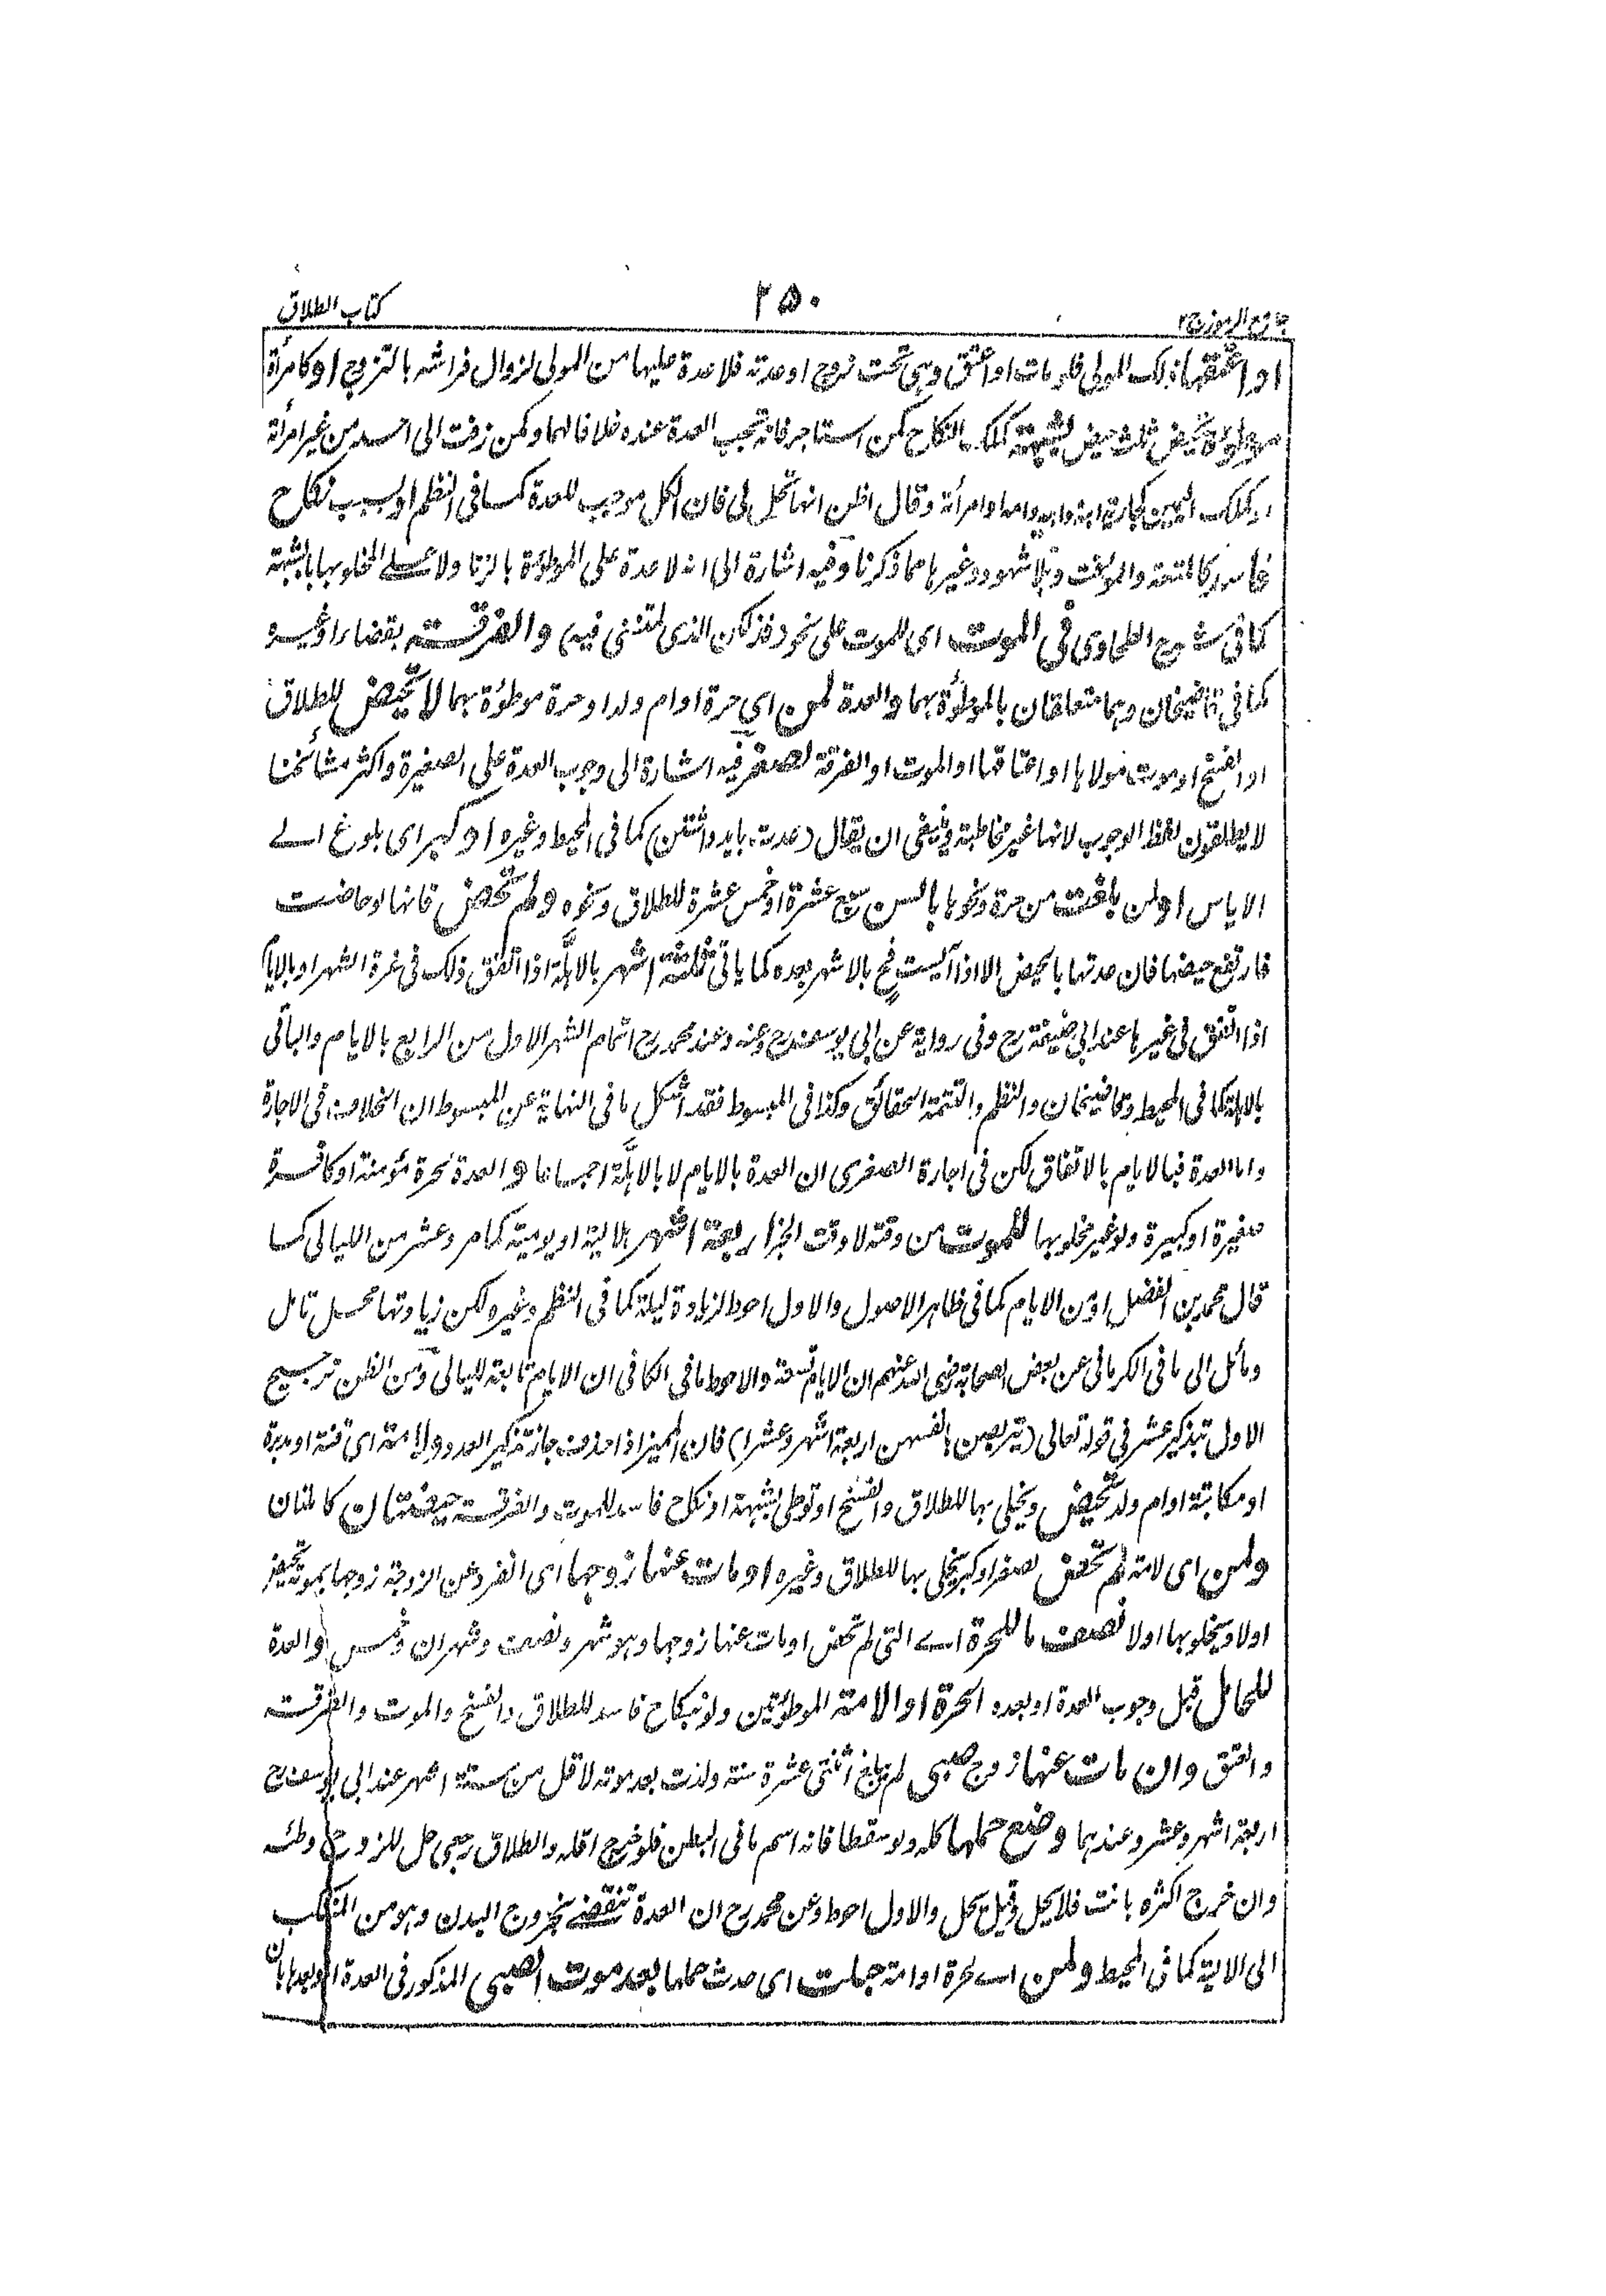 جامع الرموز ج۲ ۲۵۰ كتاب الطلاق
او اعتقها ذلك المولى فلو مات او اعتق وهى تحت زوج او عدته فلا عدة عليها من المولى لزوال فراشه بالتزوج او كامرأة
موطوءة تحيض ثلث حيض لشبهة كملك النكاح كمن استاجر فانه تجب العدة عنده خلافا لهما وكمن زفت الى احد من غير امرأته
وكملك اليمين كجارية ابنه وابيه وامه او امرأته وقال اظن انها تحل لى فان الكل موجب للعدة كما فى النظم او لسبب نكاح
فاسد كالمتعة والموقت وبلا شهود وغيرها مما ذكرنا وفيه اشارة الى انه لا عدة على الموطوءة بالزنا ولا على المخلو بها بالشبهة
كما فى شرح الطحاوى فى الموت اى للموت على نحو فذلكن الذى لمتننى فيه والفرقة بقضاء او غيره
كما فى قاضيخان وهما متعلقان بالموطوءة بهما والعدة لمن اى حرة او ام ولد او حرة موطوءة بهما لا تحيض للطلاق
او الفسخ او موت مولاها او اعتاقها او الموت او الفرقة لصغر فيه اشارة الى وجوب العدة على الصغيرة واكثر مشائخنا
لا يطلقون لفظ الوجوب لانها غير مخاطبة وينبغى ان يقال (عدت بايد داشتن) كما فى المحيط وغيره او كبر اى بلوغ الے
الاياس او لمن بلغت من حرة ونحوها بالسن سبع عشرة او خمس عشرة للطلاق ونحوه ولم تحض فانها لو حاضت
فارتفع حيضها فان عدتها بالحيض الا اذا آيست فح بالاشهر بعده كما ياتى ثلثة اشهر بالاهلة اذا اتفق ذلك فى غرة الشهر او بالايام
اذا اتفق فى غيرها عند ابى حنيفة رح وفى رواية عن ابى يوسف رح وعنه وعند محمد رح اتمام الشهر الاول من الرابع بالايام والباقى
بالاهلة كما فى المحيط وقاضيخان والنظم والتتمة الحقائق وكذا فى المبسوط فقد اشكل ما فى النهاية عن المبسوط ان الخلاف فى الاجارة
واما العدة فبالايام بالاتفاق لكن فى اجارة الصغرى ان العدة بالايام لا بالاهلة اجماعا والعدة لحرة مؤمنة او كافرة
صغيرة او كبيرة ولو غير مخلو بها للموت من وقته لا وقت الخبر اربعة اشهر هلالية او يومية كما مر وعشر من الليالى كما
قال محمد بن الفضل او من الايام كما فى ظاهر الاصول والاول احوط لزيادة ليلة كما فى النظم وغيره لكن زيادتها محل تامل
ومائل الى ما فى الكرمانى عن بعض الصحابة رضى الله عنهم ان الايام تسعة والاحوط ما فى الكافى ان الايام تابعة لليالى ومن الظن ترجيح
الاول بتذكير عشر فى قوله تعالى (يتربصن بانفسهن اربعة اشهر وعشرا) فان المميز اذا حذف جاز تذكير العدد ولامة اى قنة او مدبرة
او مكاتبة او ام ولد تحيض ويخلى بها للطلاق والفسخ او توطى بشبهة او نكاح فاسد للموت والفرقة حيضتان كاملتان
ولمن اى لامة لم تحض لصغر او كبر يخلى بها للطلاق وغيره او مات عنها زوجها اى انفرد عن الزوجة زوجها بموته تحيض
اولا ويخلو بها اولا نصف ما للحرة اے التى لم تحض او مات عنها زوجها وهو شهر ونصف وشهران وخمس والعدة
للحامل قبل وجوب العدة او بعده الحرة او الامة الموطوئتين ولو بنكاح فاسد للطلاق والفسخ والموت والفرقة
والعتق وان مات عنها زوج صبى لم يبلغ اثنتى عشرة سنة ولدت بعد موته لاقل من ستة اشهر عند ابى يوسف رح
اربعة اشهر وعشر وعندهما وضع حملها كله ولو سقطا فانه اسم ما فى البطن فلو خرج اقله والطلاق رجعى حل للزوج وطئه
وان خرج اكثره بانت فلا يحل وقيل يحل والاول احوط وعن محمد رح ان العدة تنقضے بخروج البدن وهو من المنكب
الى الالية كما فى المحيط ولمن اے لحرة او امة حبلت اى حدث حملها بعد موت الصبى المذكور فى العدة او بعدها بان